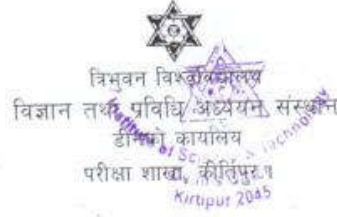 त्रिभुवन विश्वविद्यालय
विज्ञान तथा प्रविधि अध्ययन संस्थान
डीनको कार्यालय
परीक्षा शाखा, कीर्तिपुर
Institute of Sc
Kirtipur 2045